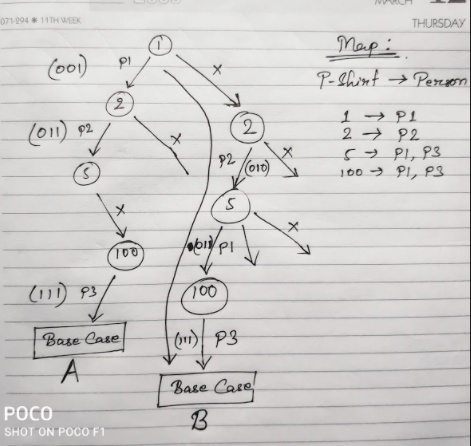 071-294 * 11TH WEEK
MARCH
THURSDAY
Map:
P-Shirt → Person
1 → P1
2 → P2
5 → P1, P3
100 → P1, P3
1
(001) P1 X
2
2
(011) P2 X
P2 (010) X
5
5
X
X
(011) P1
100
100
(111) P3
(111) P3
Base Case
A
Base Case
B
POCO
SHOT ON POCO F1